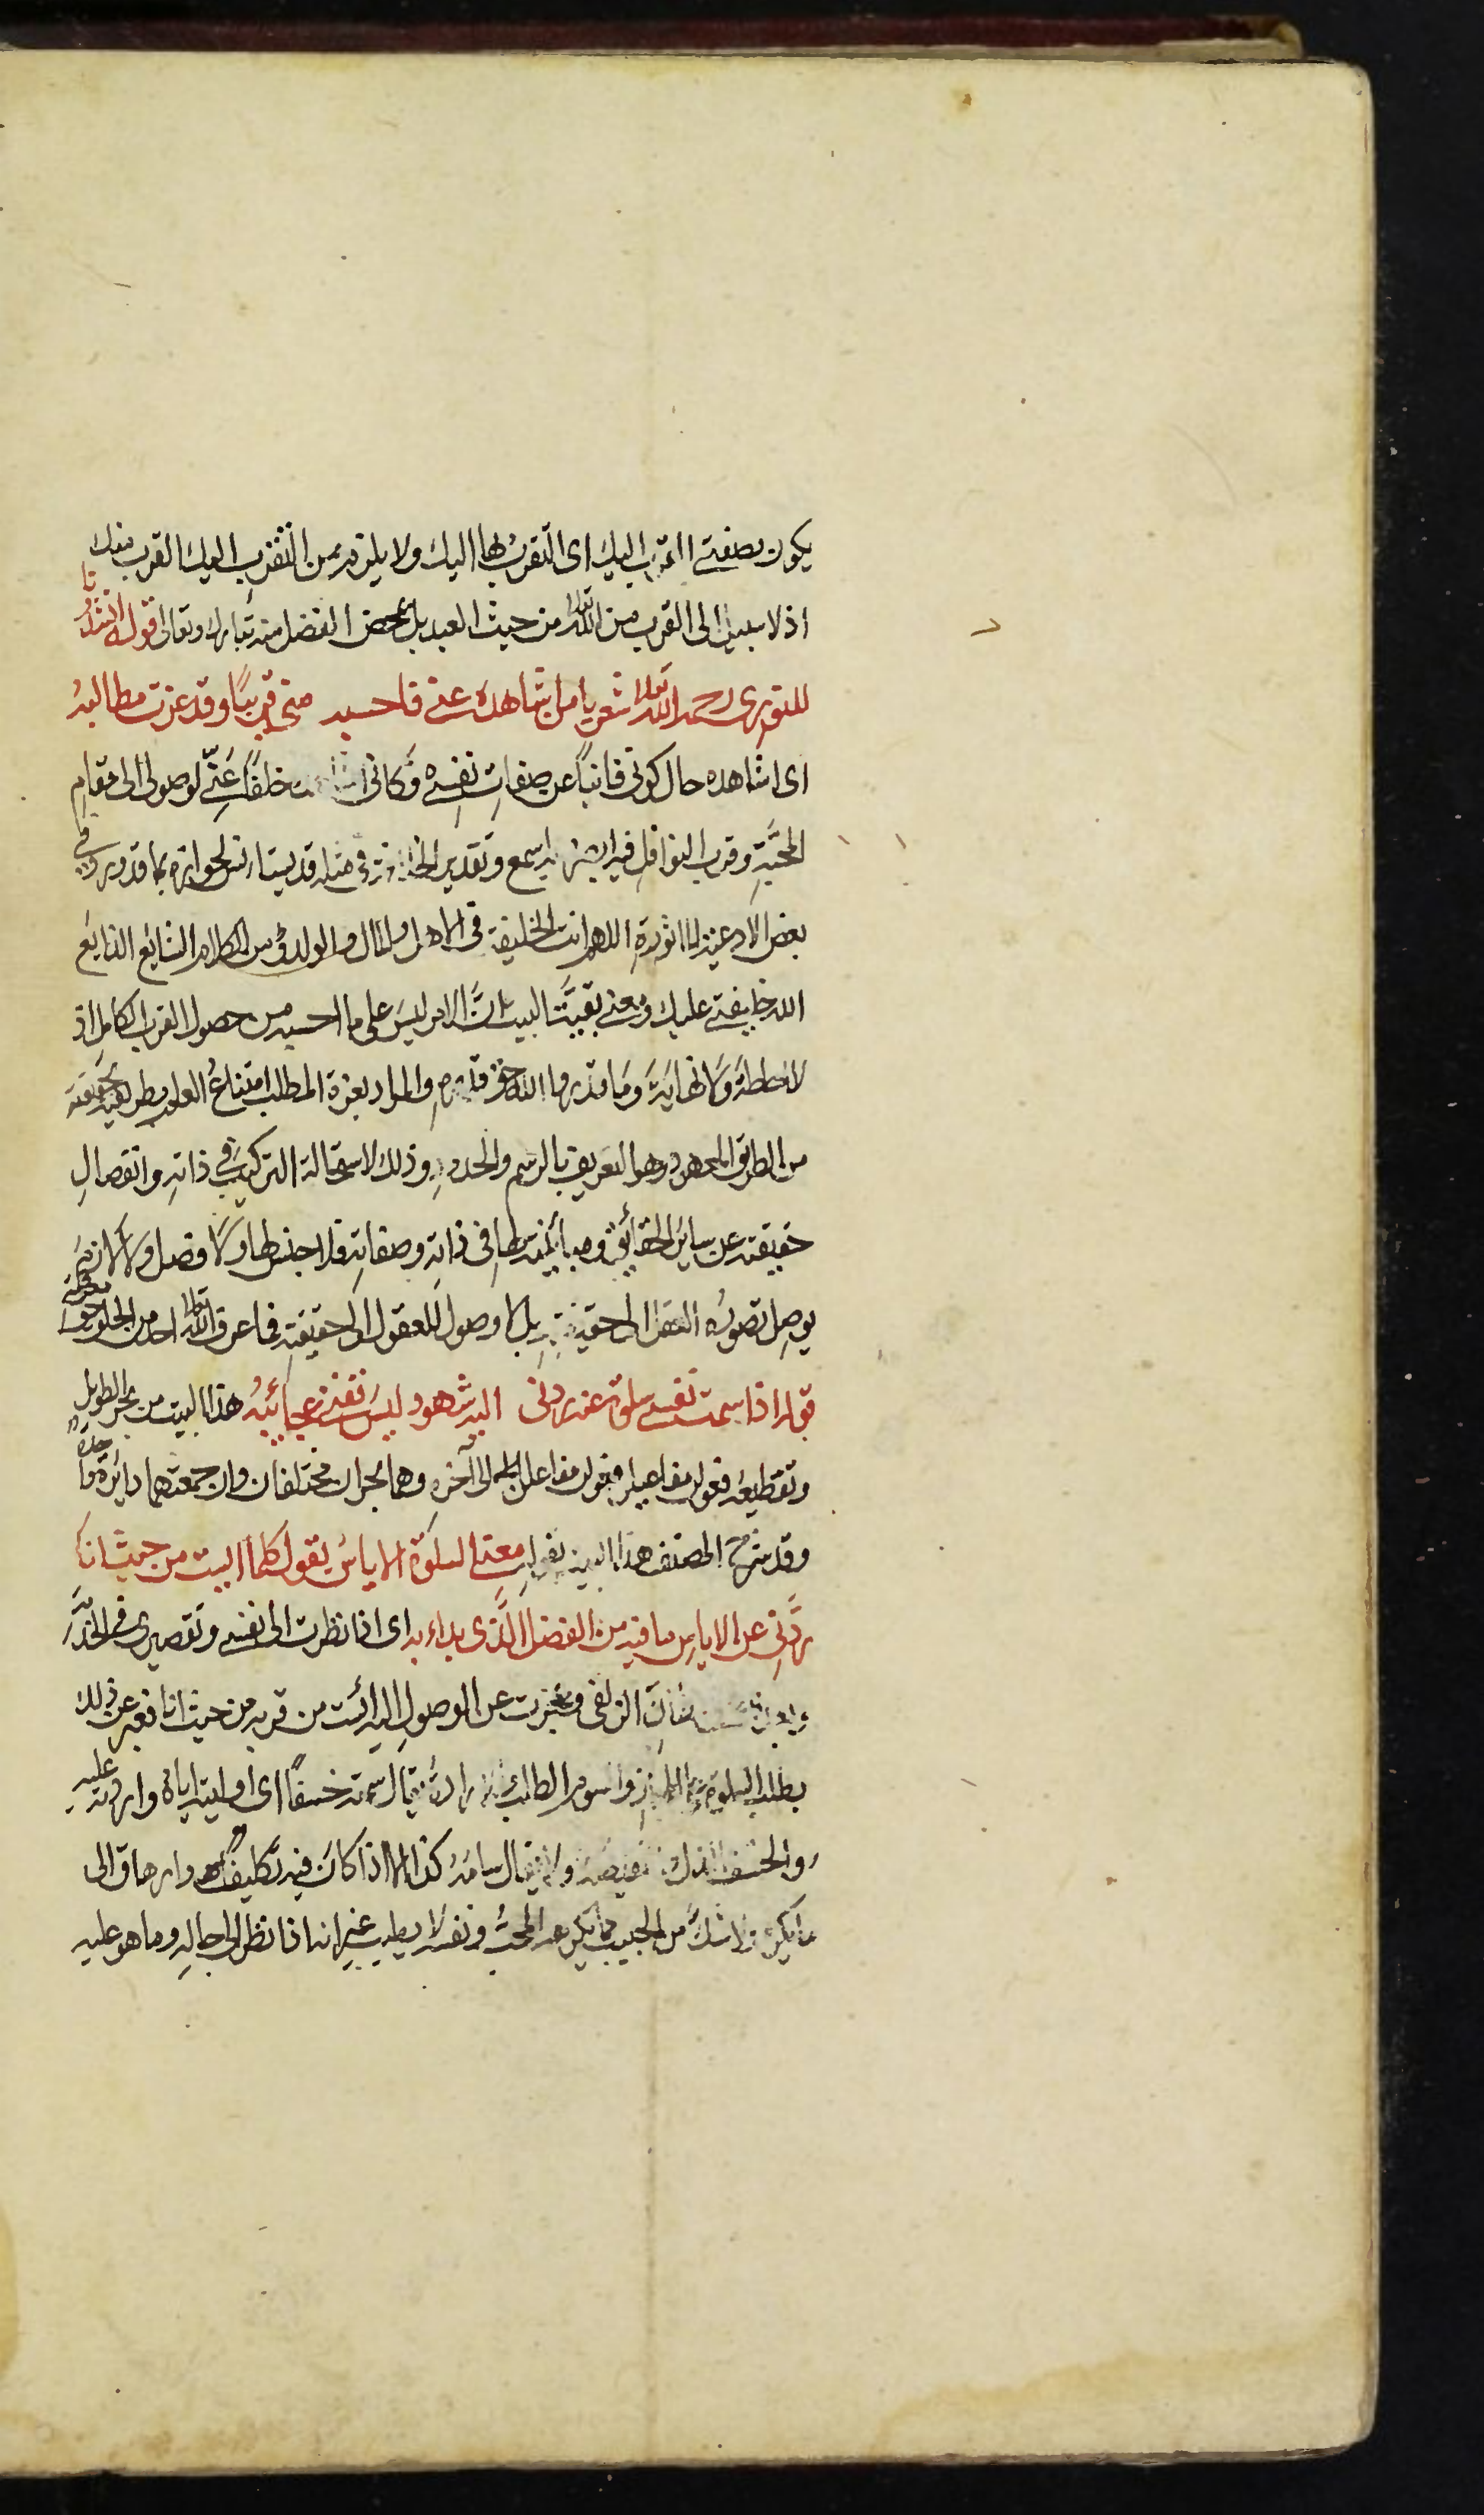 يكون بصفتى اتقرب اليك اى اتقرب بها اليك ولا يلزم من التقرب اليك القرب منك
اذ لا سبيل الى القرب من الله تعالى من حيث العبد بل بمحض الفضل منه تبارك وتعالى قوله انشدونا
للنورى رحمه الله تعالى شعر يا من اشاهده عنى فاحسبه منى قريبًا وقد عزت مطالبهُ
اى اشاهده حال كونى فانيًا عن صفاتِ نفسى وكانى خلفًا عَنّى لوصولى الى مقامِ
المحبَّةِ وقرب النوافل فبه ابصر وبه اسمع وتقدير فى مثله قد يستانس لجوازه بما قد ورد فى
بعض الادعية الماثورةِ اللهم انت الخليفة فى الاهل والمال والولد ومن الكلام الشايع الذايع
الله خليفتى عليك ومعنى بقيَّة البيت انَّ الامر ليسَ على ما احسبه من حصول القرب الكامل اذ
لا احاطةَ ولا نهايَة وَما قدروا الله حق قدره والمراد بعزة المطلب امتناعُ العلم بحقيقته
من الطريق المعهود وهو التعريف بالرسم والحدود وذلك لاستحالة التركيب فى ذاتهِ وانفصالِ
حقيقته عن سائر الحقائق ومباينته لها فى ذاتهِ وصفاتهِ فلا جنس لها ولا فصل ولا لازمَ
يوصِل تصورُه العقل الى حقيقتهِ بل لا وصول للعقول الى حقيقتهِ فما عرف الله تعالى احد من الخلق حق معرفته
قوله اذا سمت نفسى سلوة عنه ردنى اليه شهود ليس تفنى عجائبُهُ هذا البيت من بحر الطويل
وتقطيعه فعولن مفاعيلن فعولن مفاعلن الى آخره وهما بحران مختلفان وان جمعتهما دائرة واحدة
وقد شرح المصنف هذا البيت بقوله معنى السلوة الاياسُ يقول كلما ايست من حيث انا
ردَّنى عن الاياس ما فيه من الفضل الَّذى بداء به اى اذا نظرت الى نفسى وتقصيرى فى الخدمة
الزلفى وعجزت عن الوصول اليه ائست من قربه من حيث انا فعبر عن ذلك
بطلب السلوة والسوم الطلب يقال سمته خسفًا اى اوليته اياه واردته عليهِ
والخسف الذل ولا يقال سامهُ كذا الا اذا كانَ فيه تكليف له وارهاق الى
ما يكره ولا شكَّ من الحبيب مما يكرهه المحبُّ ونفسه لا يطيب غير انه اذا نظر الى جماله وما هو عليه